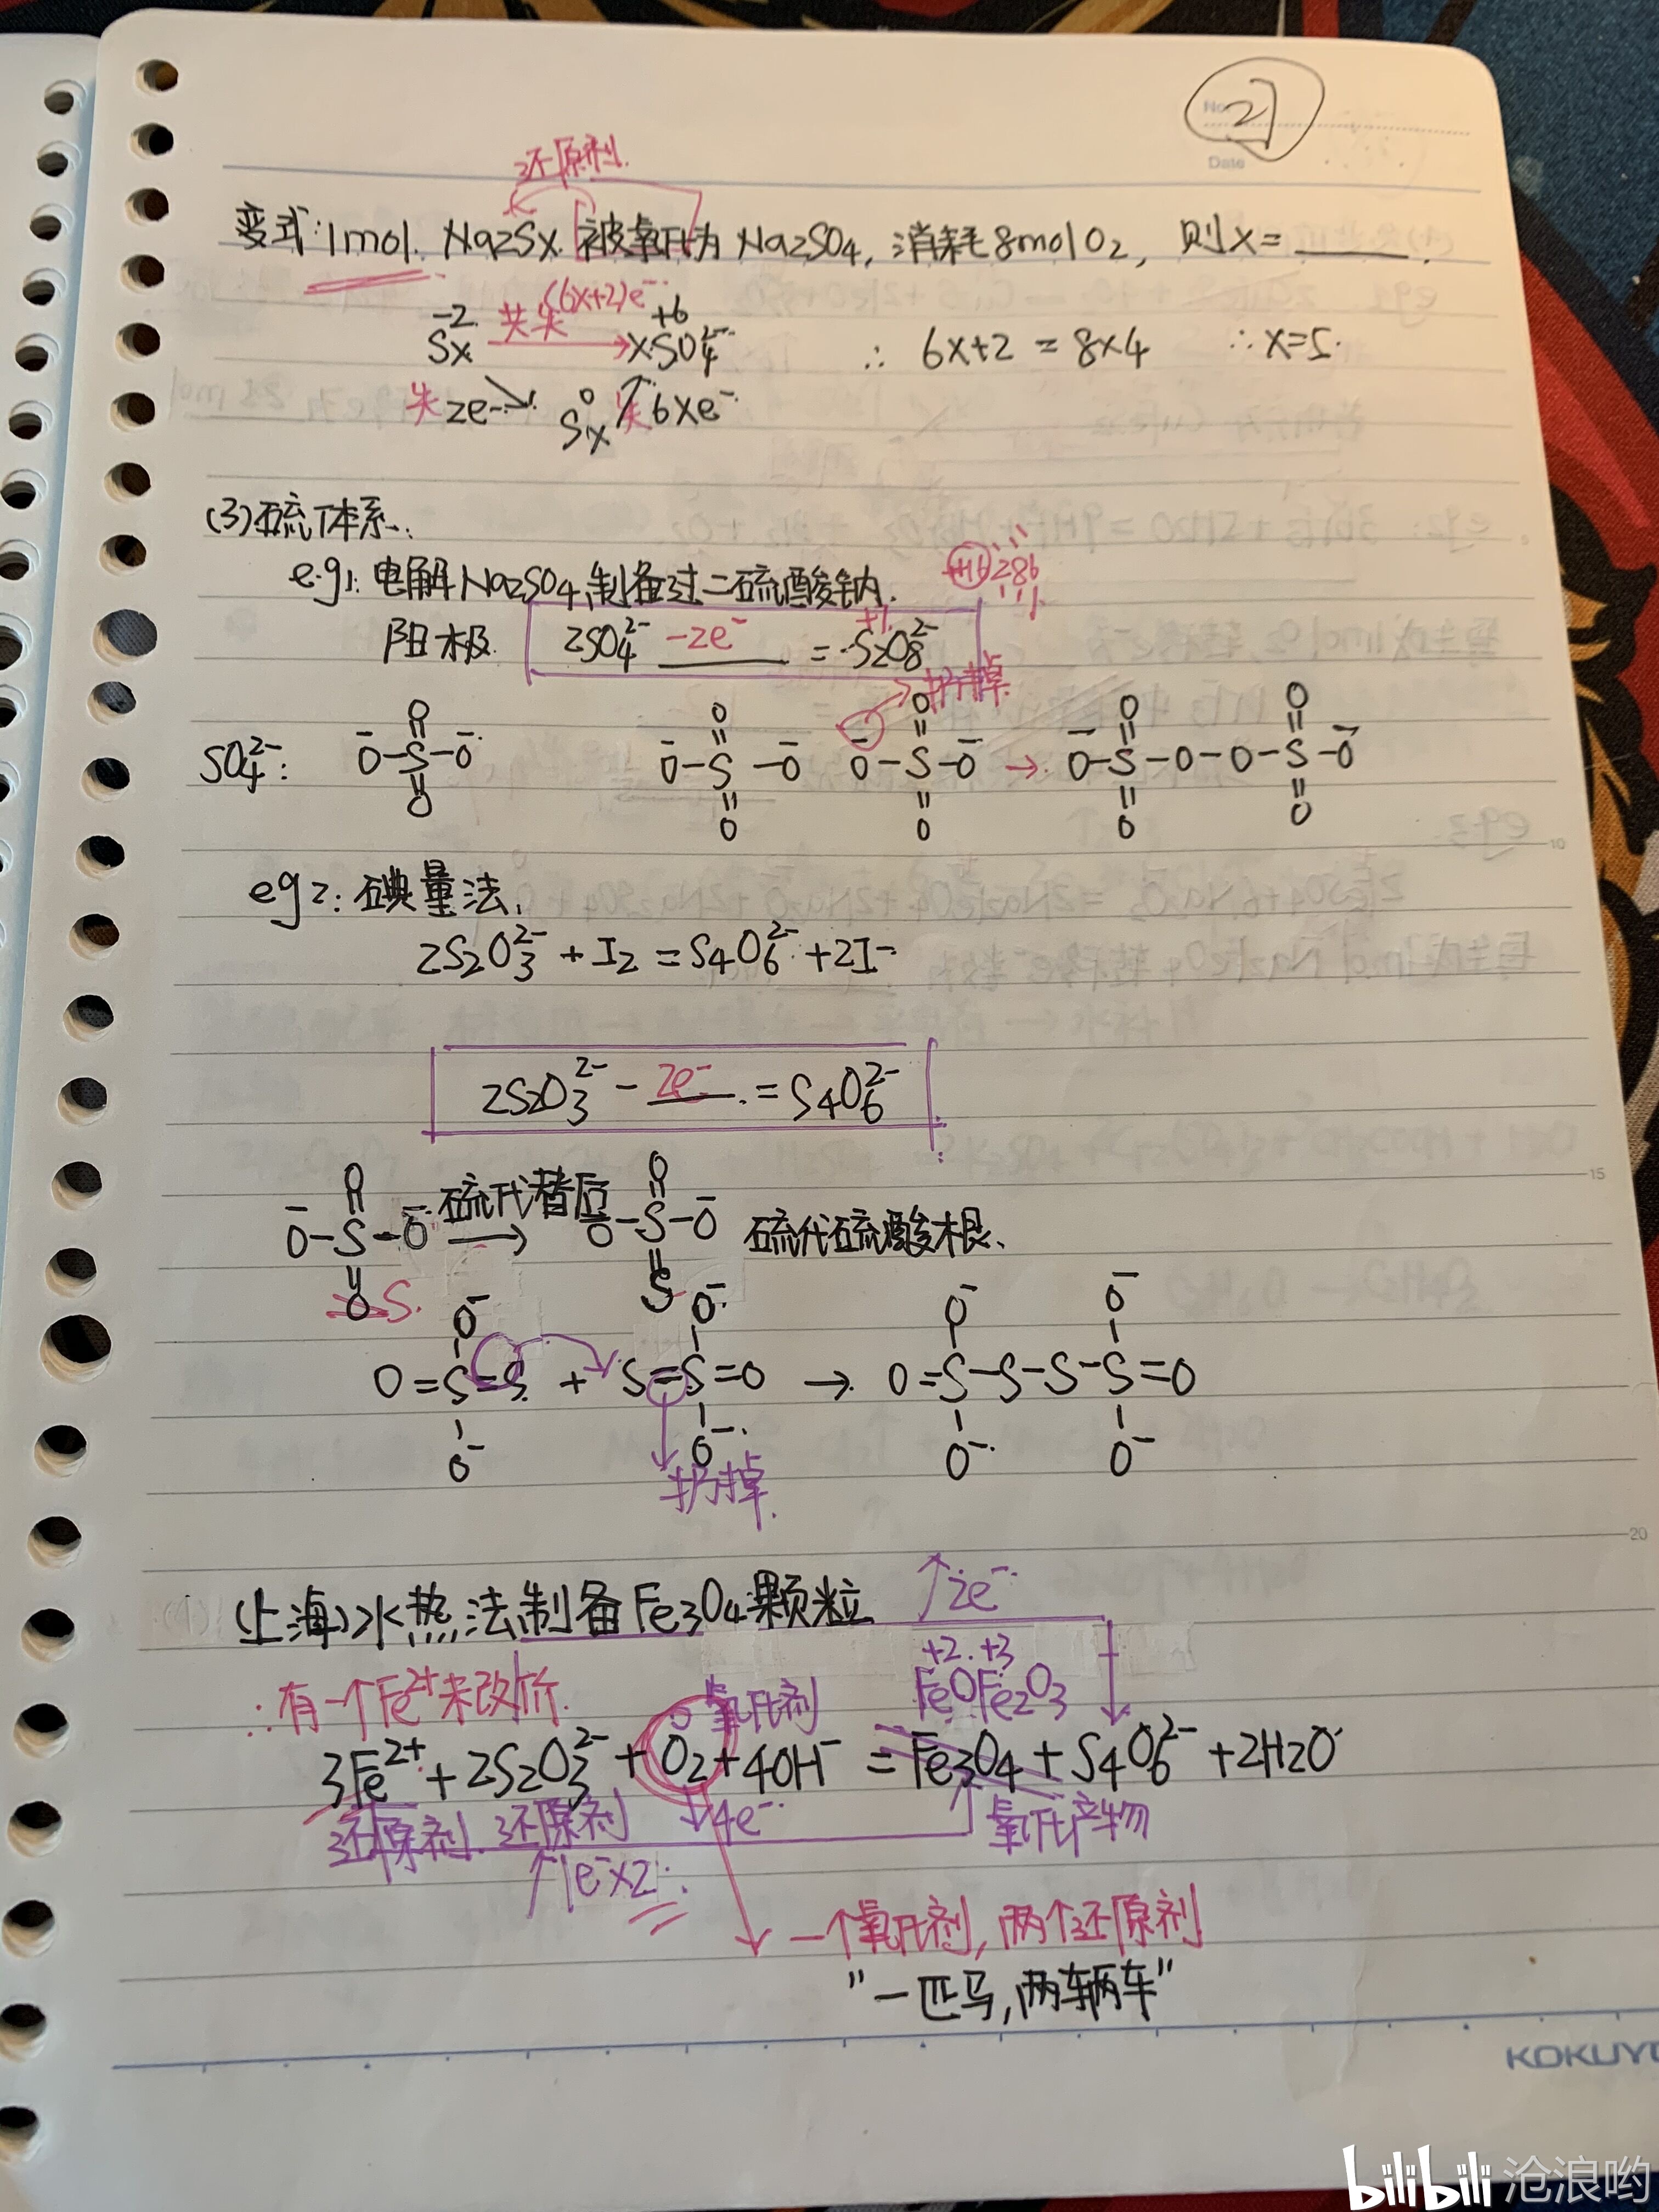 No. 21
Date
还原剂.
变式:1mol. Na2Sx 被氧化为 Na2SO4, 消耗8molO2, 则x=____.
-2 共失(6x+2)e⁻ +6
Sx → xSO4²⁻ ∴ 6x+2 = 8×4 ∴x=5.
失2e⁻ → 0 Sx 失6xe⁻
(3)硫体系:
e.g1: 电解Na2SO4制备过二硫酸钠. +16 286
阳极. 2SO4²⁻ -2e⁻ = S2O8²⁻ +7
扔掉
O O O O O
SO4²⁻: ⁻O-S-O⁻ ⁻O-S-O⁻ ⁻O-S-O⁻ → ⁻O-S-O-O-S-O⁻
O O O O O
eg2: 碘量法,
2S2O3²⁻ + I2 = S4O6²⁻ + 2I⁻
2S2O3²⁻ - 2e⁻ = S4O6²⁻
O O
⁻O-S-O⁻ 硫代替后 → ⁻O-S-O⁻ 硫代硫酸根、
O S. S
O⁻ O⁻ O⁻ O⁻
O=S=S + S=S=O → O=S-S-S-S=O
O⁻ O⁻ O⁻ O⁻
扔掉.
(上海)水热法制备Fe3O4颗粒 ↑2e⁻
+2 +3
∴有一个Fe²⁺未改价. 氧化剂 FeOFe2O3
0
3Fe²⁺ + 2S2O3²⁻ + O2 + 4OH⁻ = Fe3O4 + S4O6²⁻ + 2H2O
还原剂 还原剂 ↓4e⁻ 氧化产物
↑1e⁻×2
一个氧化剂, 两个还原剂
"一匹马, 两辆车"
KOKUYO
bilibili 沧浪哟